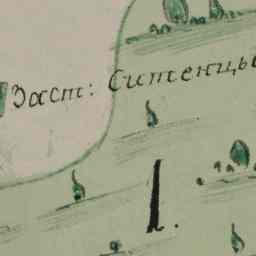 Заст: Ситенцы
1.